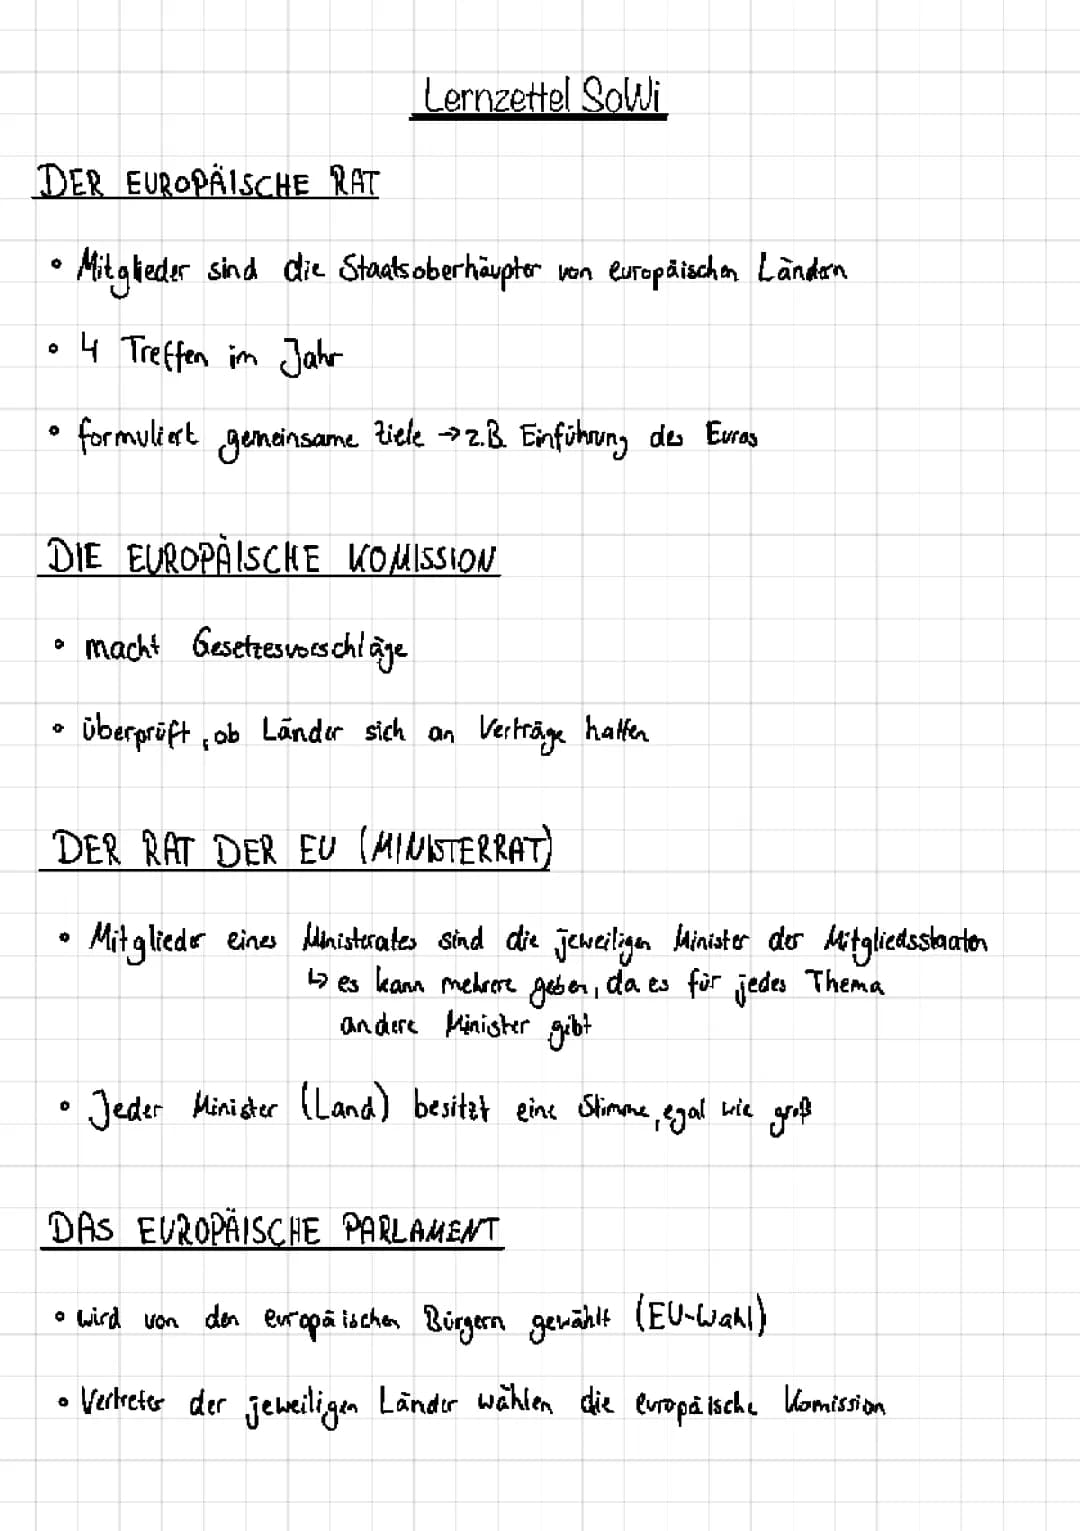 Lernzettel SoWi
DER EUROPÄISCHE RAT
• Mitglieder sind die Staatsoberhäupter von europäischen Ländern
• 4 Treffen im Jahr
• formuliert gemeinsame Ziele → z.B. Einführung des Euros
DIE EUROPÄISCHE KOMISSION
• macht Gesetzesvorschläge
• überprüft, ob Länder sich an Verträge halten
DER RAT DER EU (MINISTERRAT)
• Mitglieder eines Ministerates sind die jeweiligen Minister der Mitgliedsstaaten
↳ es kann mehrere geben, da es für jedes Thema
andere Minister gibt
• Jeder Minister (Land) besitzt eine Stimme, egal wie groß
DAS EUROPÄISCHE PARLAMENT
• wird von den europäischen Bürgern gewählt (EU-Wahl)
• Vertreter der jeweiligen Länder wählen die europäische Komission